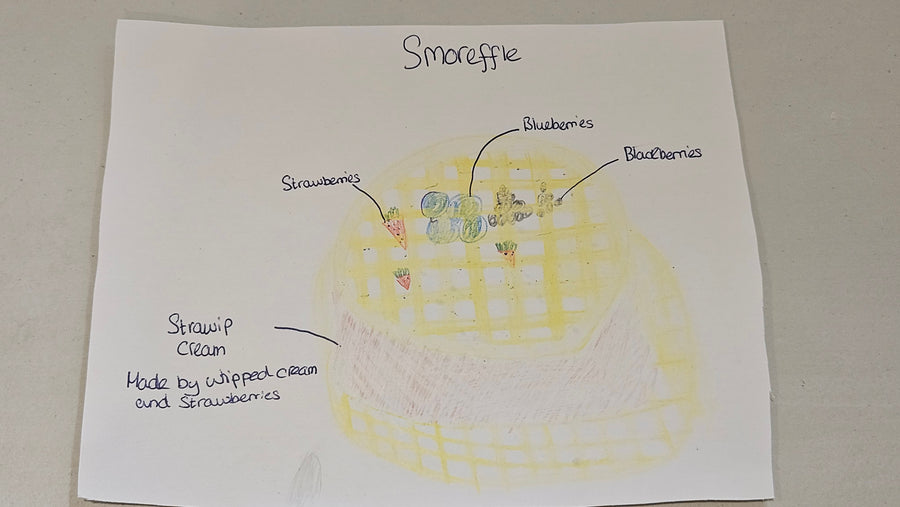 Smoreffle
Blueberries
Blackberries
Strawberries
Strawip
Cream
Made by whipped cream
and Strawberries